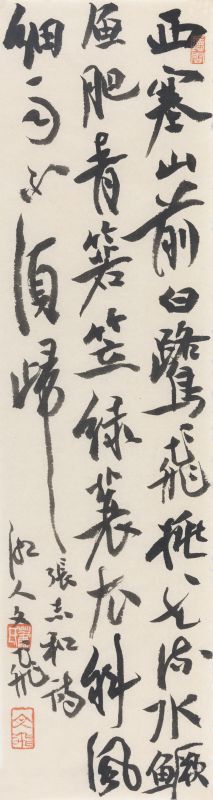 西塞山前白鷺飛桃花流水鱖
魚肥青箬笠綠蓑衣斜風
細雨不須歸
張志和詩
人文飛